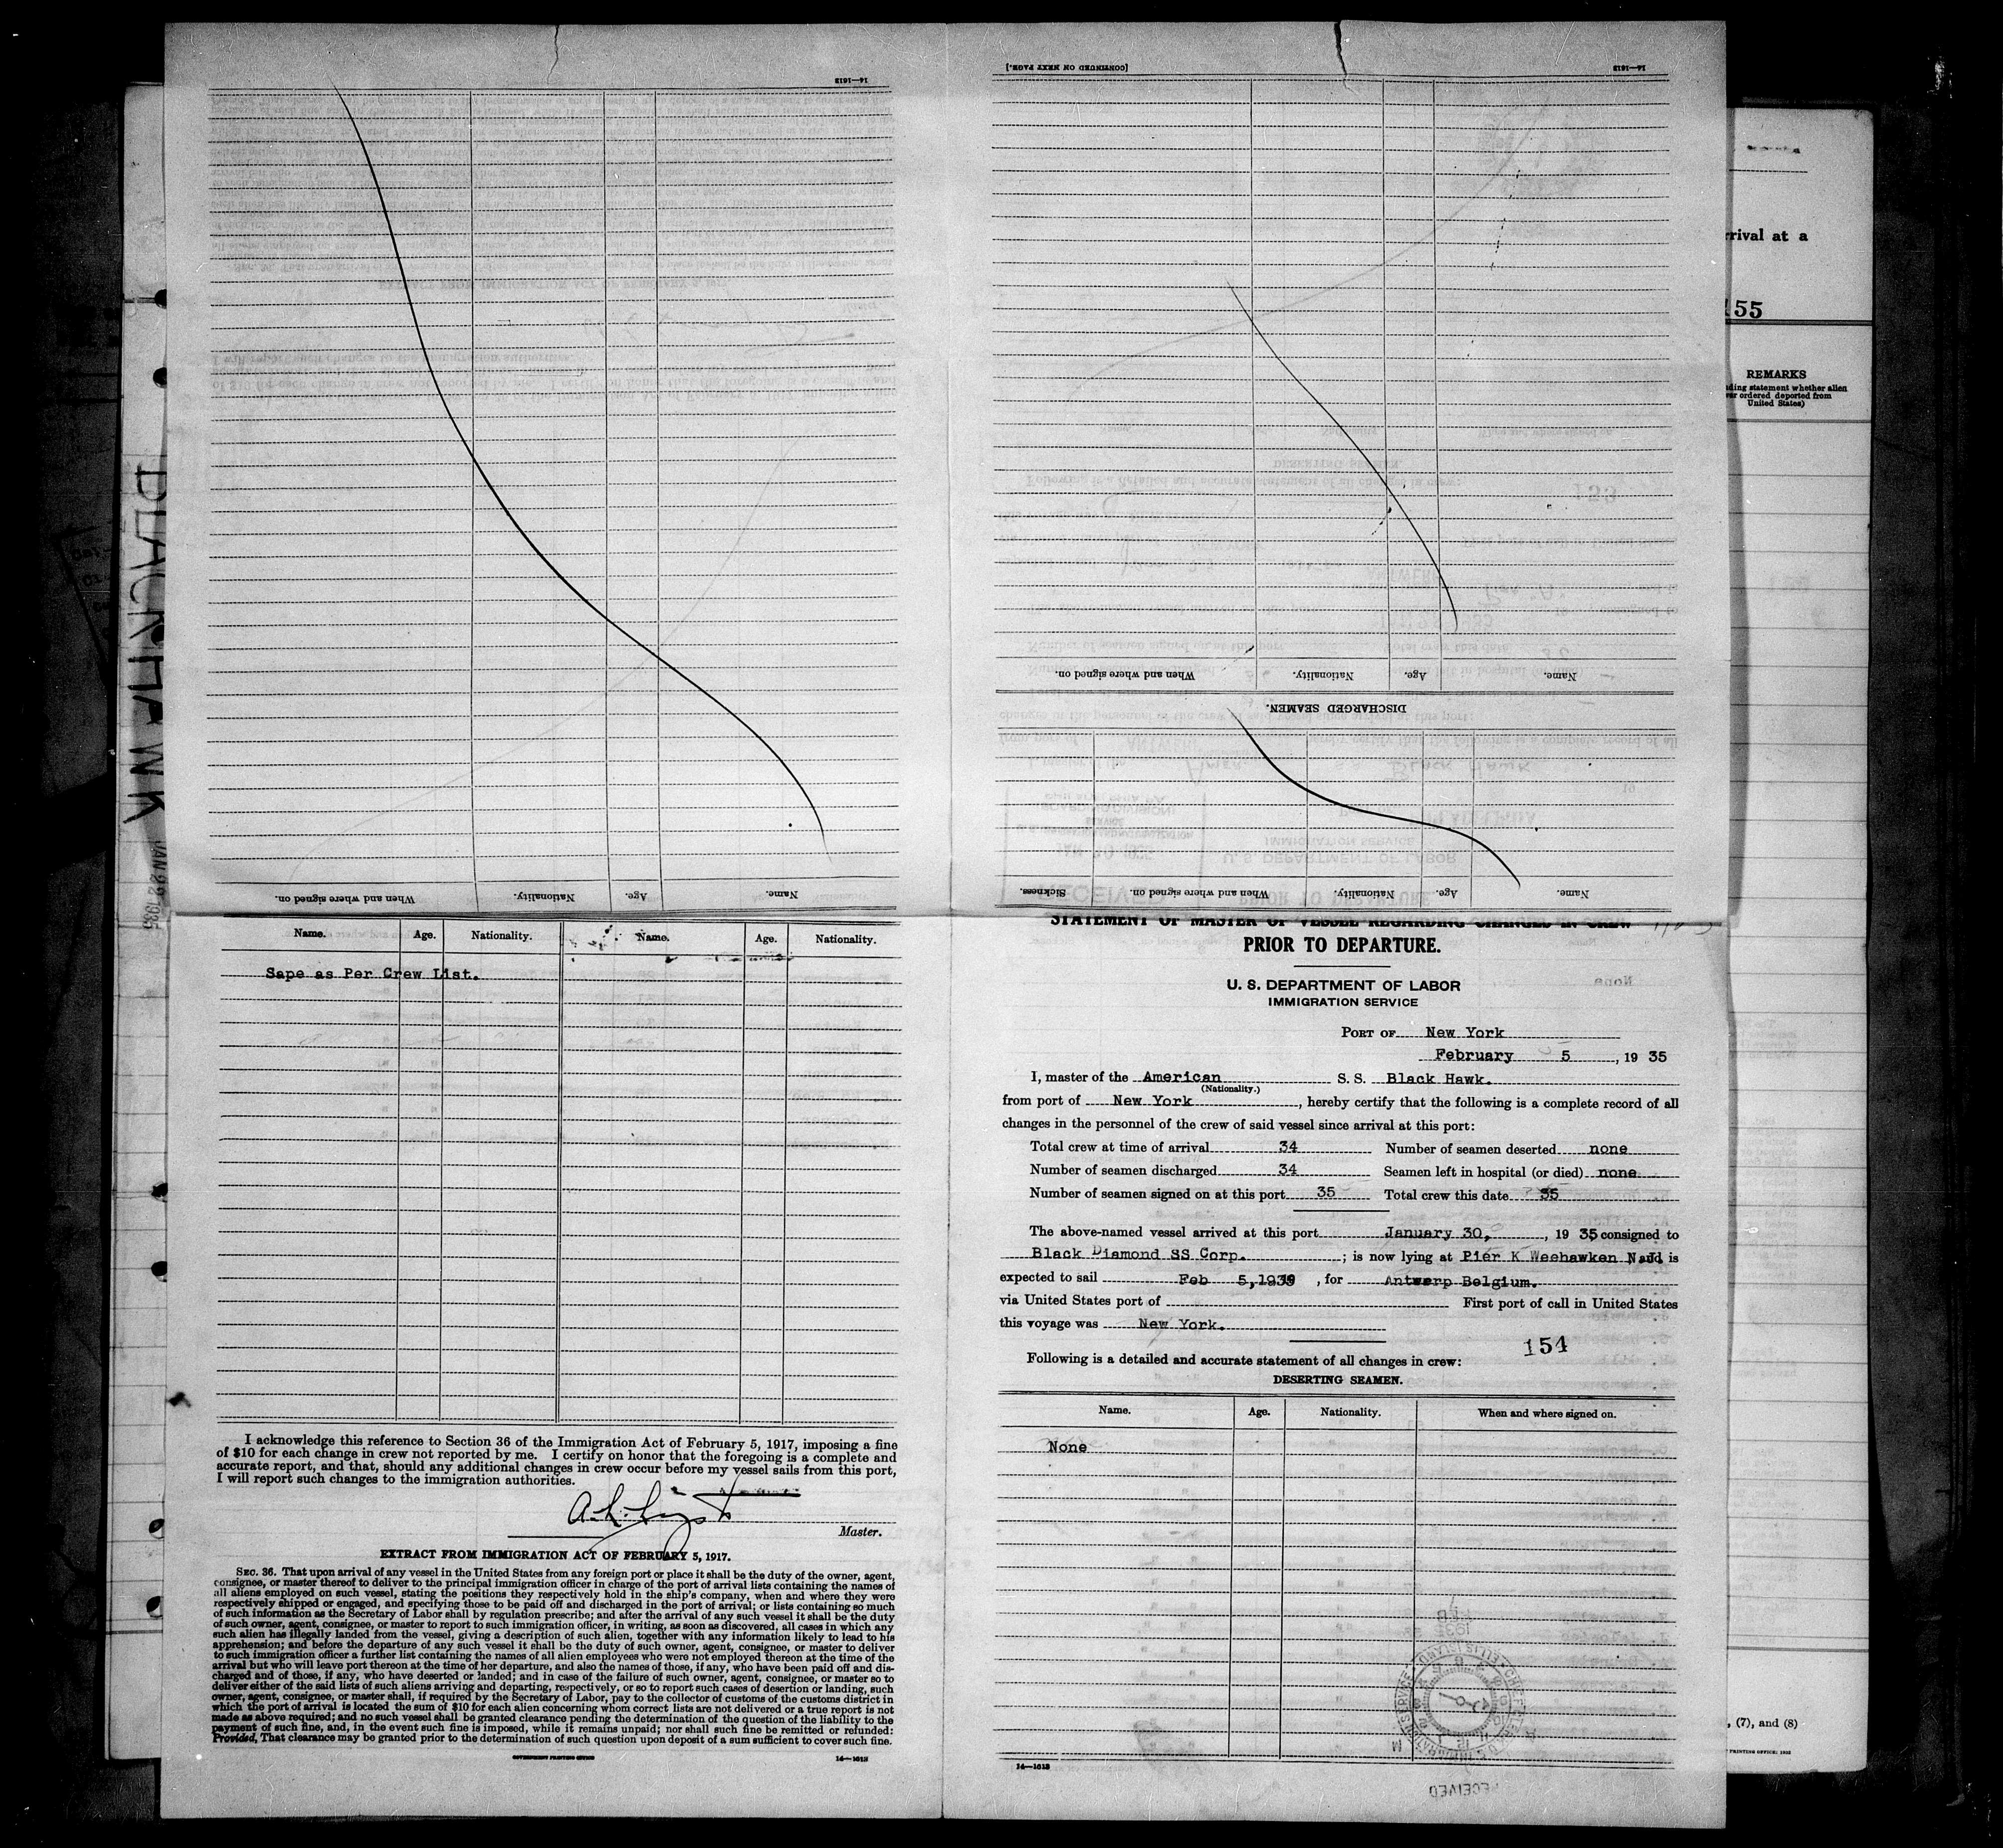 14—1613
When and where signed on.
Nationality.
Age.
Name.
[CONTINUED ON NEXT PAGE.]
14—1613
When and where signed on.
Nationality.
Age.
Name.
DISCHARGED SEAMEN.
Sickness.
When and where signed on.
Nationality.
Age.
Name.
Name.
Age.
Nationality.
Name.
Age.
Nationality.
Sape as Per Crew List.
I acknowledge this reference to Section 36 of the Immigration Act of February 5, 1917, imposing a fine
of $10 for each change in crew not reported by me. I certify on honor that the foregoing is a complete and
accurate report, and that, should any additional changes in crew occur before my vessel sails from this port,
I will report such changes to the immigration authorities.
Master.
EXTRACT FROM IMMIGRATION ACT OF FEBRUARY 5, 1917.
SEC. 36. That upon arrival of any vessel in the United States from any foreign port or place it shall be the duty of the owner, agent,
consignee, or master thereof to deliver to the principal immigration officer in charge of the port of arrival lists containing the names of
all aliens employed on such vessel, stating the positions they respectively hold in the ship's company, when and where they were
respectively shipped or engaged, and specifying those to be paid off and discharged in the port of arrival; or lists containing so much
of such information as the Secretary of Labor shall by regulation prescribe; and after the arrival of any such vessel it shall be the duty
of such owner, agent, consignee, or master to report to such immigration officer, in writing, as soon as discovered, all cases in which any
such alien has illegally landed from the vessel, giving a description of such alien, together with any information likely to lead to his
apprehension; and before the departure of any such vessel it shall be the duty of such owner, agent, consignee, or master to deliver
to such immigration officer a further list containing the names of all alien employees who were not employed thereon at the time of the
arrival but who will leave port thereon at the time of her departure, and also the names of those, if any, who have been paid off and dis-
charged and of those, if any, who have deserted or landed; and in case of the failure of such owner, agent, consignee, or master so to
deliver either of the said lists of such aliens arriving and departing, respectively, or so to report such cases of desertion or landing, such
owner, agent, consignee, or master shall, if required by the Secretary of Labor, pay to the collector of customs of the customs district in
which the port of arrival is located the sum of $10 for each alien concerning whom correct lists are not delivered or a true report is not
made as above required; and no such vessel shall be granted clearance pending the determination of the question of the liability to the
payment of such fine, and, in the event such fine is imposed, while it remains unpaid; nor shall such fine be remitted or refunded:
Provided, That clearance may be granted prior to the determination of such question upon deposit of a sum sufficient to cover such fine.
GOVERNMENT PRINTING OFFICE
14—1613
STATEMENT OF MASTER OF VESSEL REGARDING CHANGES IN CREW
PRIOR TO DEPARTURE.
U. S. DEPARTMENT OF LABOR
IMMIGRATION SERVICE
PORT OF New York
February 5, 19 35
I, master of the American S. S. Black Hawk.
(Nationality.)
from port of New York, hereby certify that the following is a complete record of all
changes in the personnel of the crew of said vessel since arrival at this port:
Total crew at time of arrival 34 Number of seamen deserted none
Number of seamen discharged 34 Seamen left in hospital (or died) none
Number of seamen signed on at this port 35 Total crew this date 35
The above-named vessel arrived at this port January 30, , 19 35 consigned to
Black Diamond SS Corp. ; is now lying at Pier K Weehawken N.J. and is
expected to sail Feb 5, , for Antwerp Belgium.
via United States port of First port of call in United States
this voyage was New York.
154
Following is a detailed and accurate statement of all changes in crew:
DESERTING SEAMEN.
Name.
Age.
Nationality.
When and where signed on.
None
14—1613
RECEIVED
BLACK HAWK
JAN 22 1935
rrival at a
155
REMARKS
ding statement whether alien
ver ordered deported from
United States)
, (7), and (8)
PRINTING OFFICE: 1932